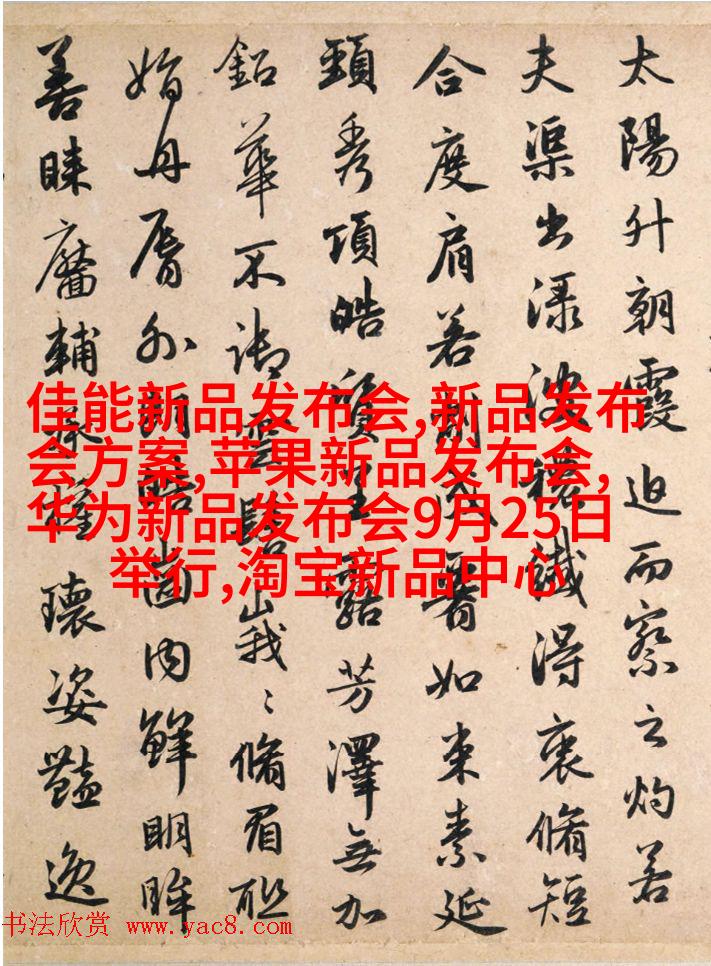 太陽升朝霞迫而察之灼若
夫渠出淥波穠纖得衷脩短
合度肩若削成如束素延
頸秀項皓質呈露芳澤無加
鈆華不御雲髻峩〻脩眉聯
娟丹脣外朗皓齒内鮮明眸
善睞靨輔承權瓌姿豔逸
佳能新品发布会,新品发布
会方案,苹果新品发布会,
华为新品发布会9月25日
举行,淘宝新品中心
书法欣赏 www.yac8.com